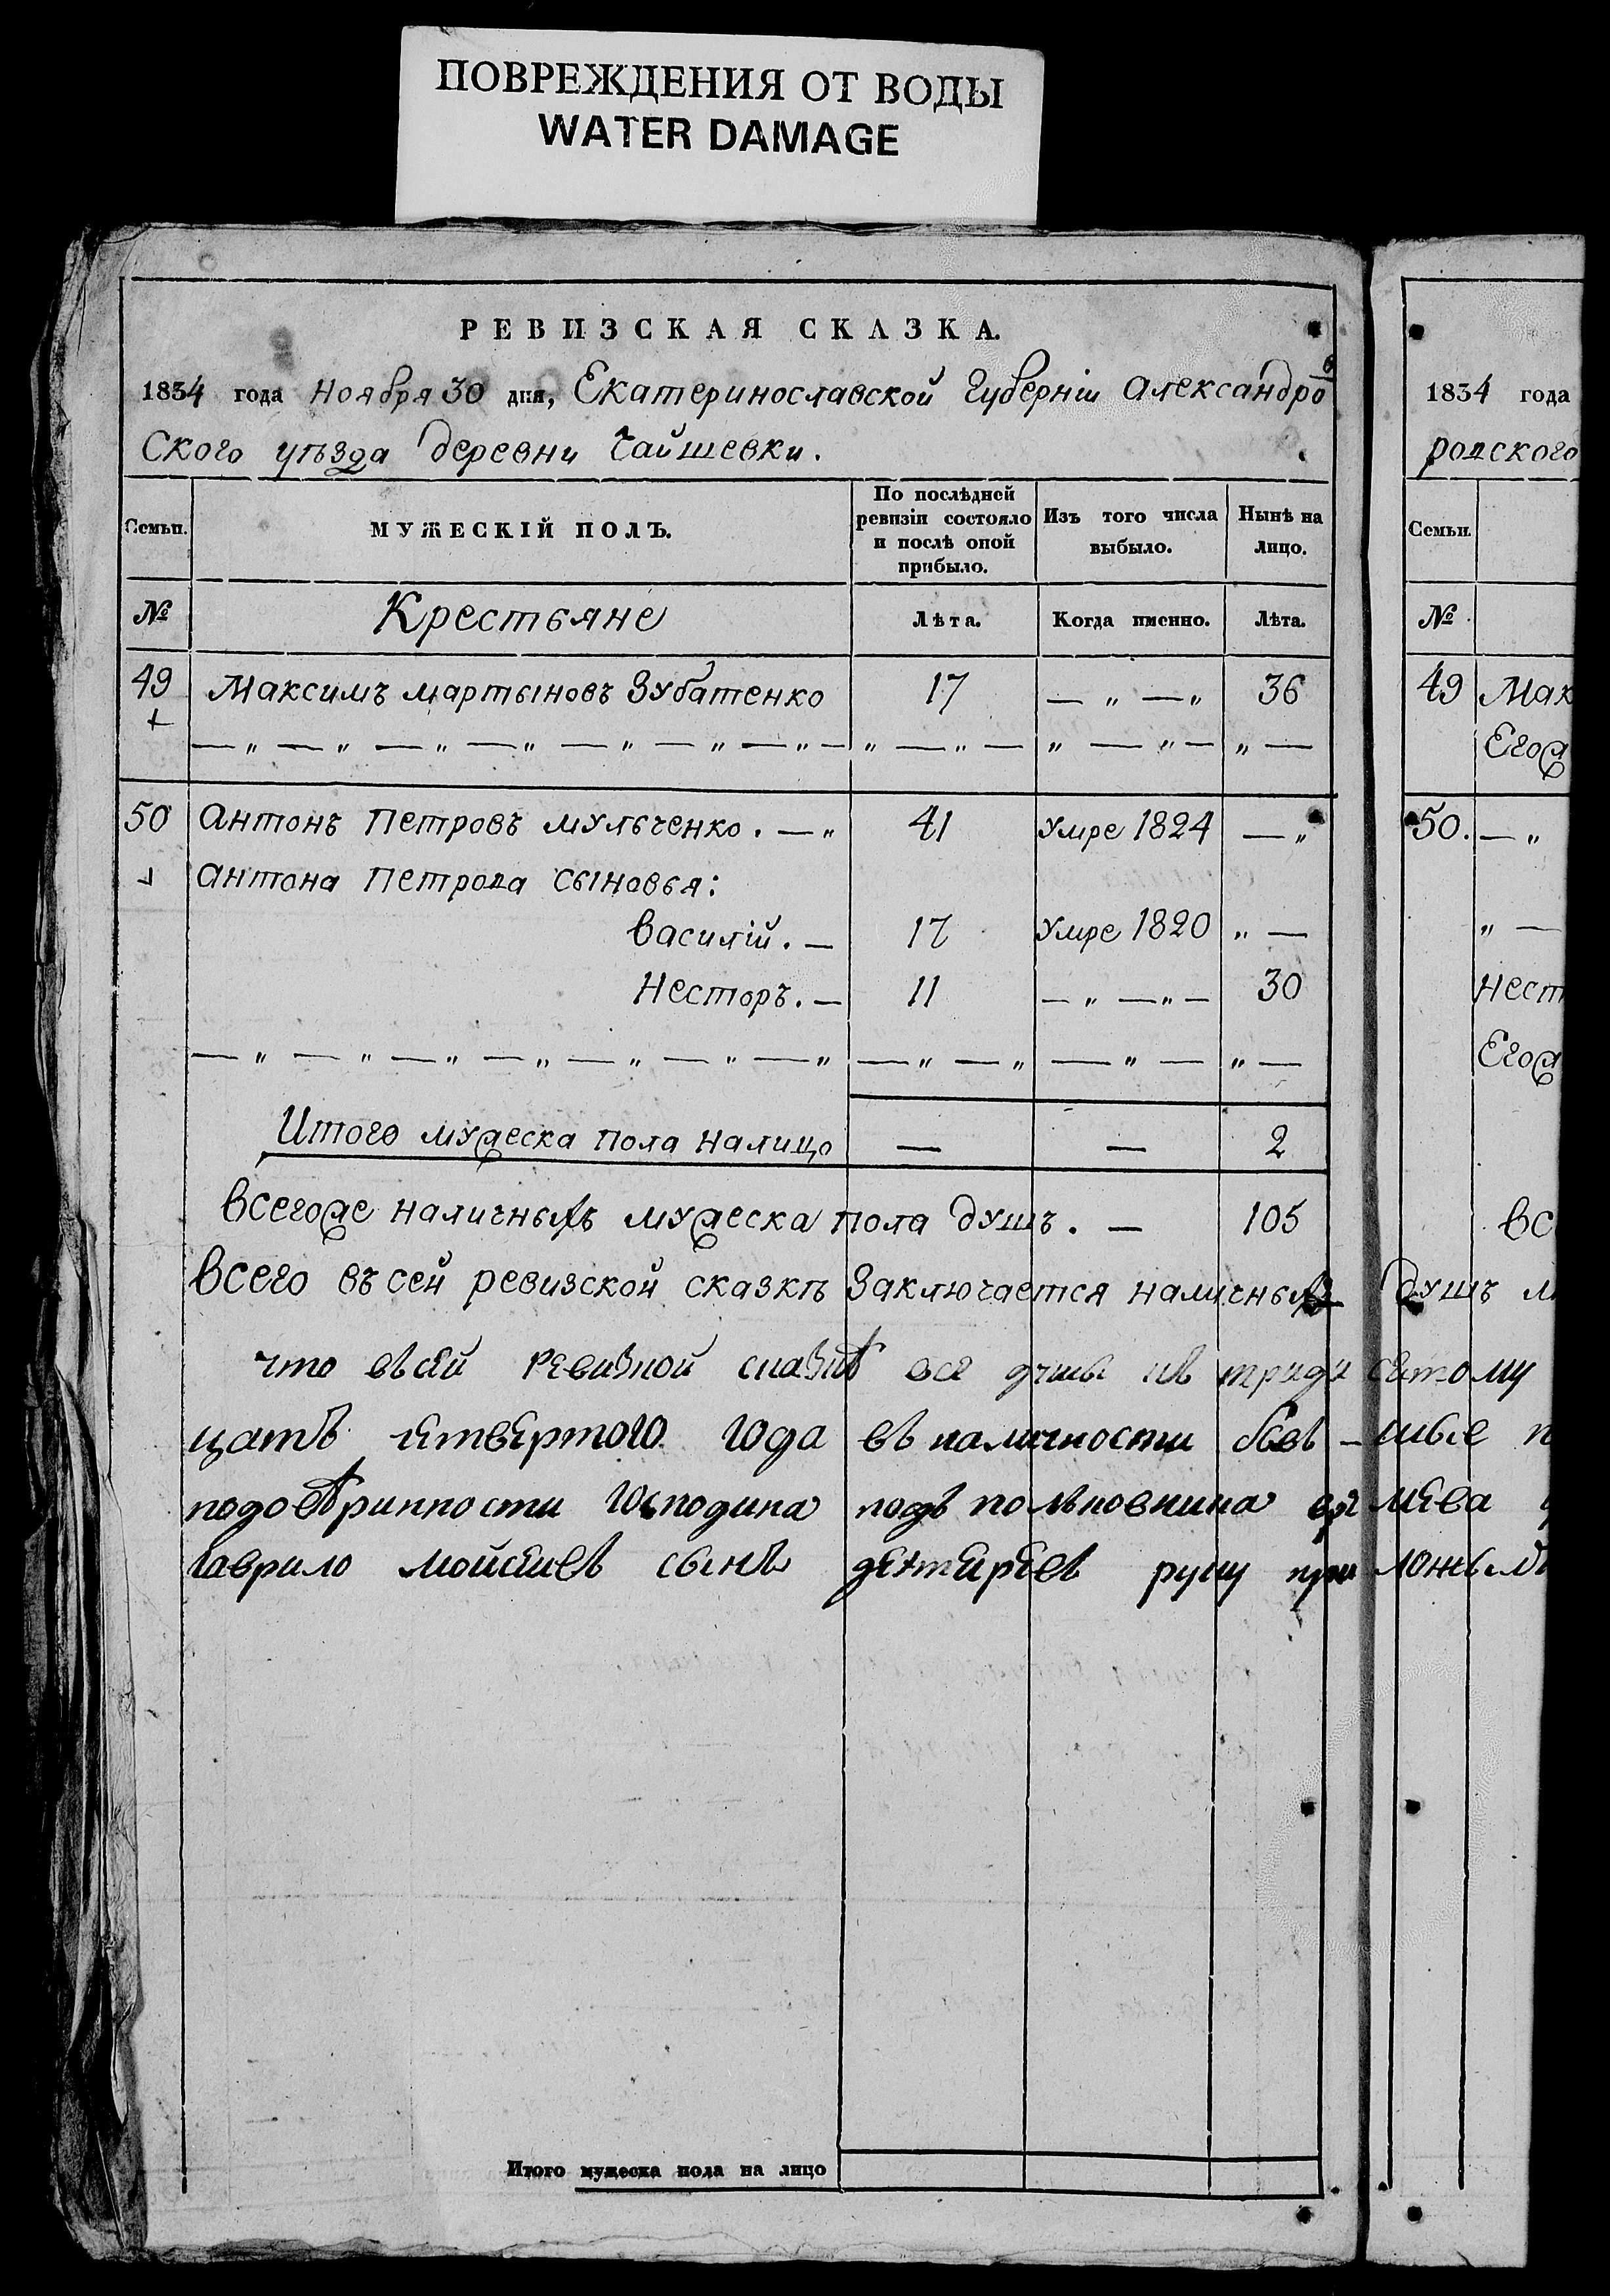 ПОВРЕЖДЕНИЯ ОТ ВОДЫ
WATER DAMAGE
РЕВИЗСКАЯ СКАЗКА.
1834 года Ноября 30 дня, Екатеринославской Губерніи Александров
Ского уѣзда деревни Чайшевки.
Семьи. МУЖЕСКІЙ ПОЛЪ. По послѣдней ревизіи состояло и послѣ оной прибыло. Изъ того числа выбыло. Нынѣ на лицо.
№ Крестьяне Лѣта. Когда именно. Лѣта.
49 Максимъ Мартыновъ Зубатенко 17 — „ — „ 36
50 Антонъ Петровъ Мульченко. — „ 41 Умре 1824 — „
Антона Петрова Сыновья:
Василій. — 17 Умре 1820 „ —
Несторъ. — 11 — „ — „ — 30
Итого мужеска пола налицо — — 2
Всегоже наличныхъ мужеска пола душъ. — 105
Всего въ сей ревизской сказкѣ Заключается наличныхъ
что въ сей ревизкой сказкѣ все
цатъ четвертого года въ наличности
подовѣринности Господина подъ полковника
Гаврило Мойсиевъ сынъ Дехтиревъ руку
1834 года
родского
Семьи.
№
49 Мак
Егож
50. — „
„ —
Нест
Егож
ВС
душъ м